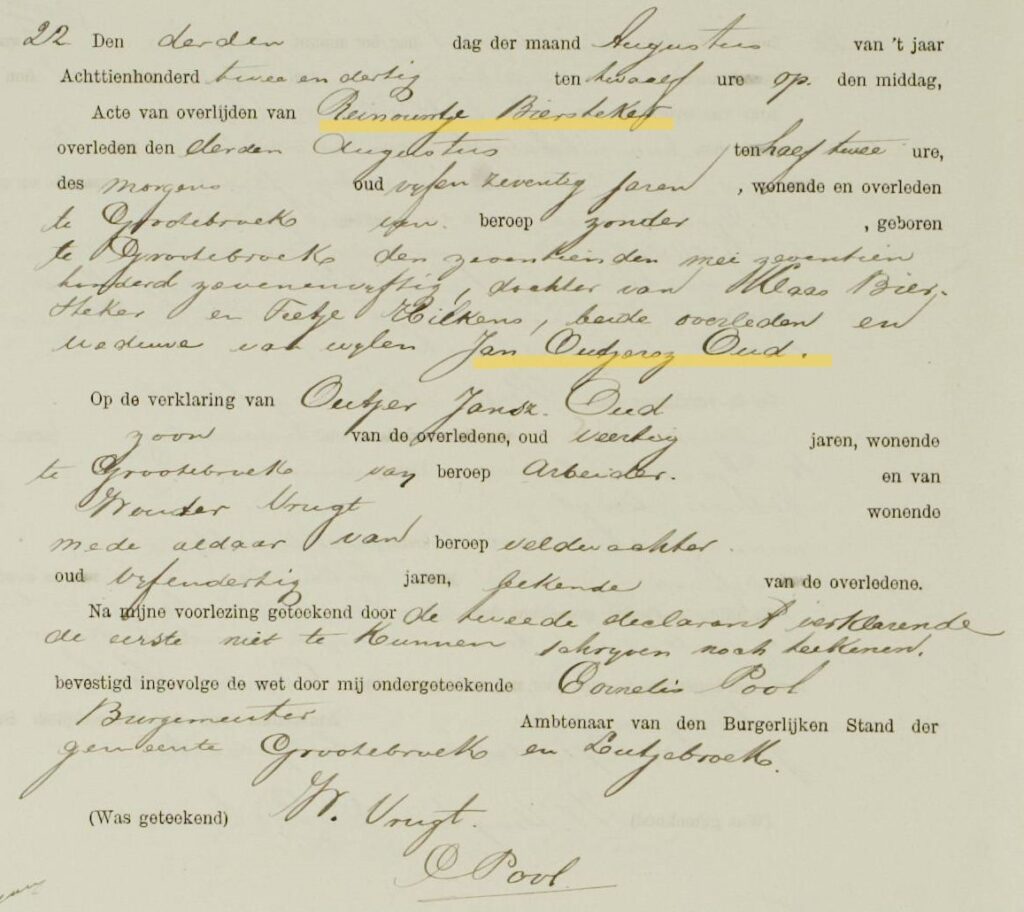 22 Den derden dag der maand Augustus van 't jaar
Achttienhonderd twee en dertig ten twaalf ure op den middag,
Acte van overlijden van Reinouwtje Biersteker
overleden den derden Augustus ten half twee ure,
des morgens oud vyfen zeventig jaren , wonende en overleden
te Grootebroek van beroep zonder , geboren
te Grootebroek den zeventienden mei zeventien
honderd zevenenvyftig, dochter van Klaas Bier-
steker en Tietje Hilkens, beide overleden en
weduwe van wylen Jan Outgersz Oud.
Op de verklaring van Outjer Jansz. Oud
zoon van de overledene, oud veertig jaren, wonende
te Grootebroek van beroep arbeider. en van
Wouter Vrugt wonende
mede aldaar van beroep veldwachter.
oud vyfendertig jaren, bekende van de overledene.
Na mijne voorlezing geteekend door de tweede declarant verklarende
de eerste niet te kunnen schryven noch teekenen.
bevestigd ingevolge de wet door mij ondergeteekende Cornelis Pool
Burgemeester Ambtenaar van den Burgerlijken Stand der
gemeente Grootebroek en Lutjebroek.
(Was geteekend) W. Vrugt.
C Pool